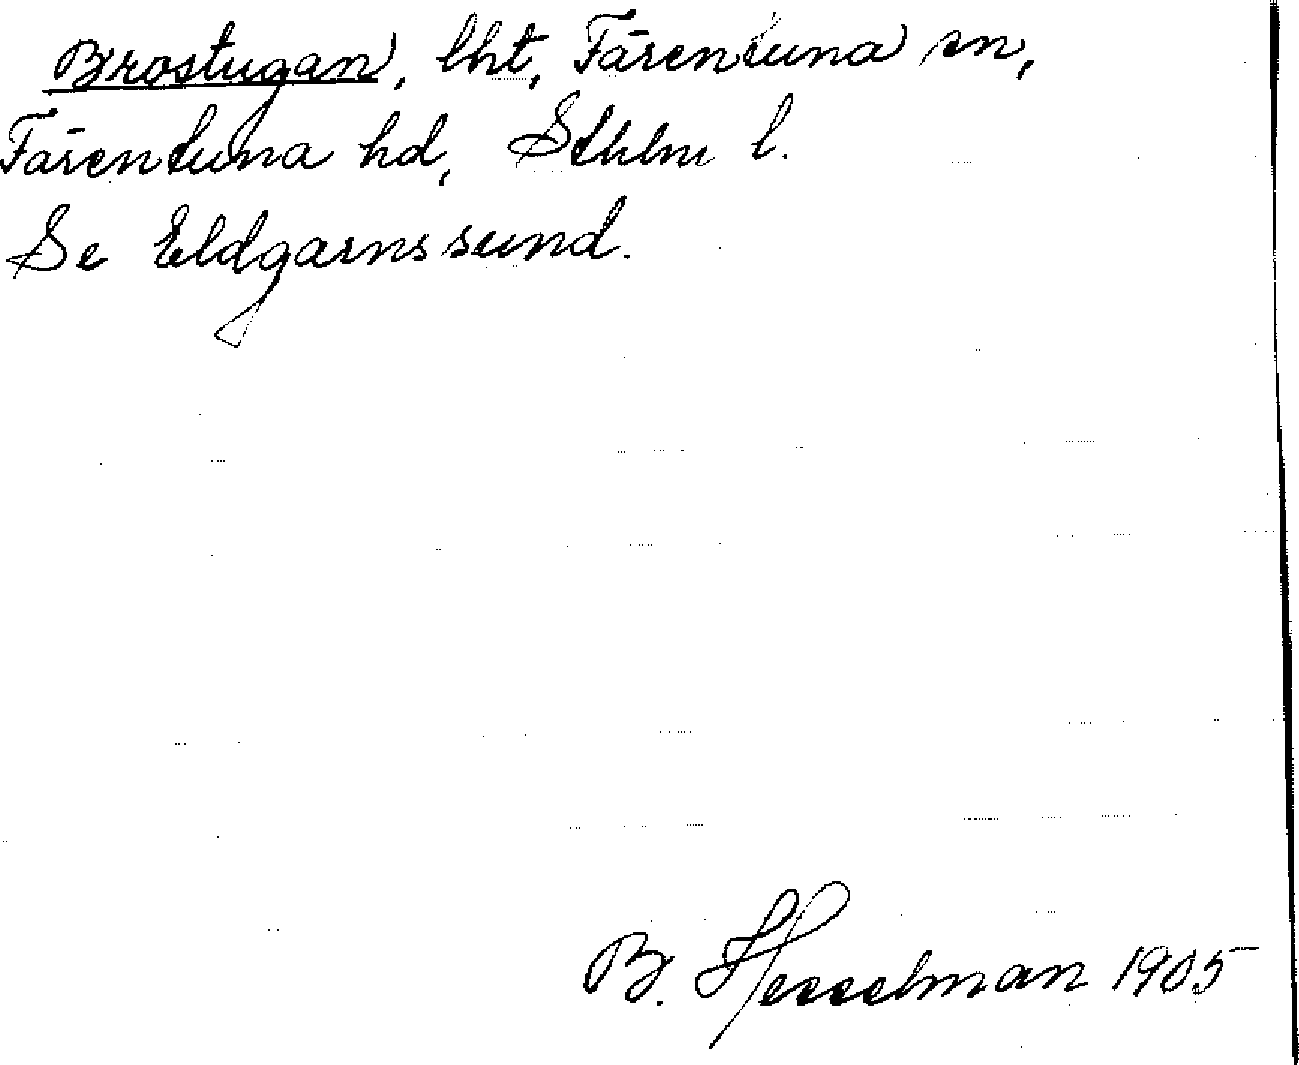 Brostugan, lht, Färentuna sn,
Färentuna hd, Sthlm l.
Se Eldgarnssund.
B. Hesselman 1905